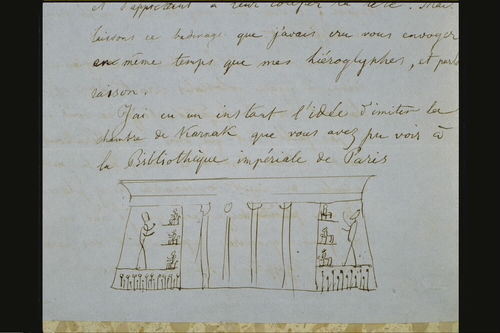 et d'apprêtant à leur couper la tête. Mais
laissons ce badinage que j'avais cru vous envoyer
en même temps que mes hiéroglyphes, et parlons
raison.
J'ai eu un instant l'idée d'imiter la
chambre de Karnak que vous avez pu voir à
la Bibliothèque impériale de Paris